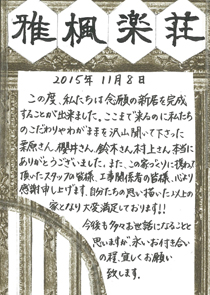 雅楓楽荘
2015年 11月8日
この度、私たちは念願の新居を完成
することが出来ました。ここまで来るのに私たちの
こだわりやわがままを沢山聞いて下さった
栗原さん、櫻井さん、鈴木さん、村上さん本当に
ありがとうございました。また、この家づくりに携わって
頂いたスタッフの皆様、工事関係者の皆様、心より
感謝申し上げます。自分たちの思い描いた以上の
家となり大変満足しております!!
今後も多々お世話になることと
思いますが、永いお付き合い
の程、宜しくお願い
致します。